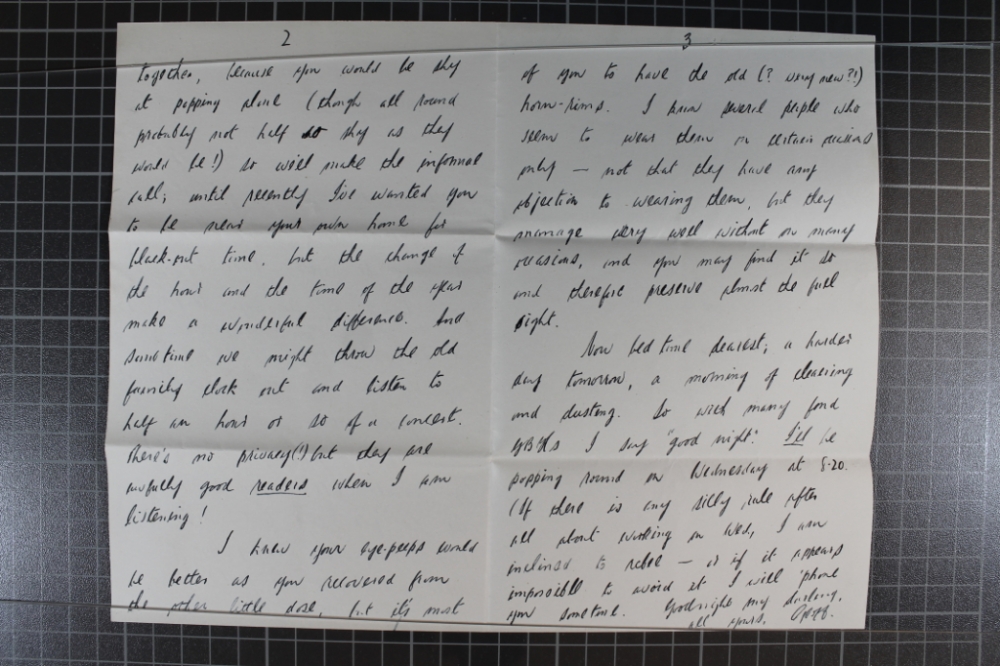 2
together, because you would be shy
at popping alone (though all round
probably not half so shy as they
would be!) so we'll make the informal
call; until recently I've wanted you
to be near your own home for
black-out time, but the change of
the hour and the time of the year
make a wonderful difference. And
sometime we might throw the old
family clock out and listen to
half an hour or so of a concert.
There's no privacy(!) but they are
awfully good readers when I am
listening!
I knew your eye-peeps would
be better as you recovered from
the other little dose, but it's most
3
of you to have the old (? very new?!)
horn-rims. I know several people who
seem to wear them on certain occasions
only – not that they have any
objection to wearing them, but they
manage very well without on many
occasions, and you may find it so
and therefore preserve almost the full
sight.
Now bed time dearest; a harder
day tomorrow, a morning of cleaning
and dusting. So with many fond
I say "good night". I'll be
popping round on Wednesday at 8-20.
(If there is any silly rule after
all about working on Wed, I am
inclined to rebel – or if it appears
impossible to avoid it I will 'phone
you sometime. Goodnight my darling,
all yours,